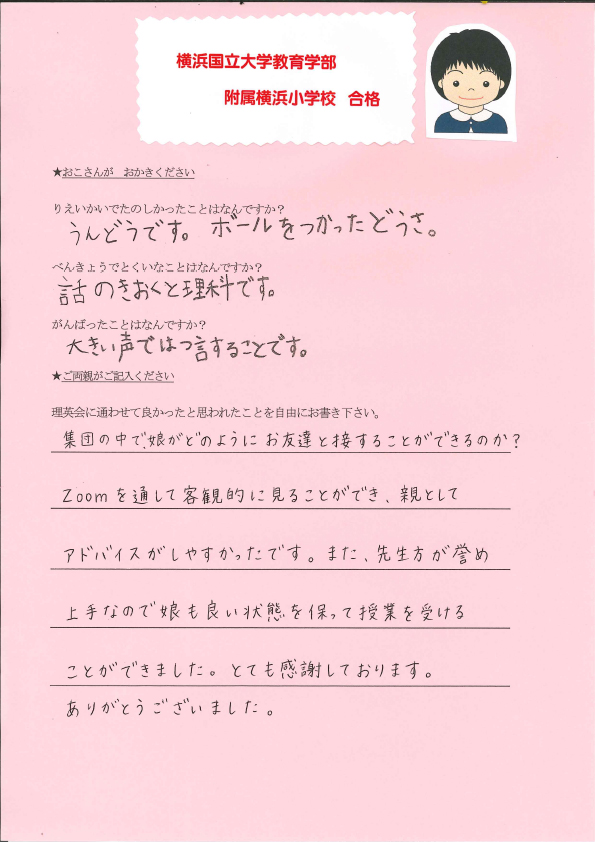 横浜国立大学教育学部
附属横浜小学校 合格
★おこさんが おかきください
りえいかいでたのしかったことはなんですか？
うんどうです。ボールをつかったどうさ。
べんきょうでとくいなことはなんですか？
話のきおくと理科です。
がんばったことはなんですか？
大きい声ではつ言することです。
★ご両親がご記入ください
理英会に通わせて良かったと思われたことを自由にお書き下さい。
集団の中で、娘がどのようにお友達と接することができるのか？
Zoomを通して客観的に見ることができ、親として
アドバイスがしやすかったです。また、先生方が誉め
上手なので娘も良い状態を保って授業を受ける
ことができました。とても感謝しております。
ありがとうございました。